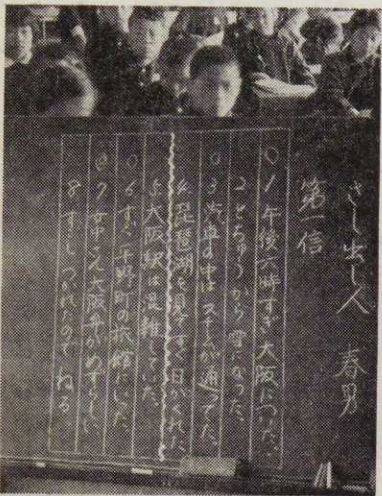 さし出し人　春男
第一信
○1 午後六時すぎ大阪についた。
2 とちゅうから雪になった。
○3 汽車の中はスチームが通ってた。
4 琵琶湖を見てすぐ日がくれた。
5 大阪駅は混雑していた。
○6 すぐ平野町の旅館にいった
◎7 女中さん大阪弁がめずらしい
8 すこしつかれたのでねる